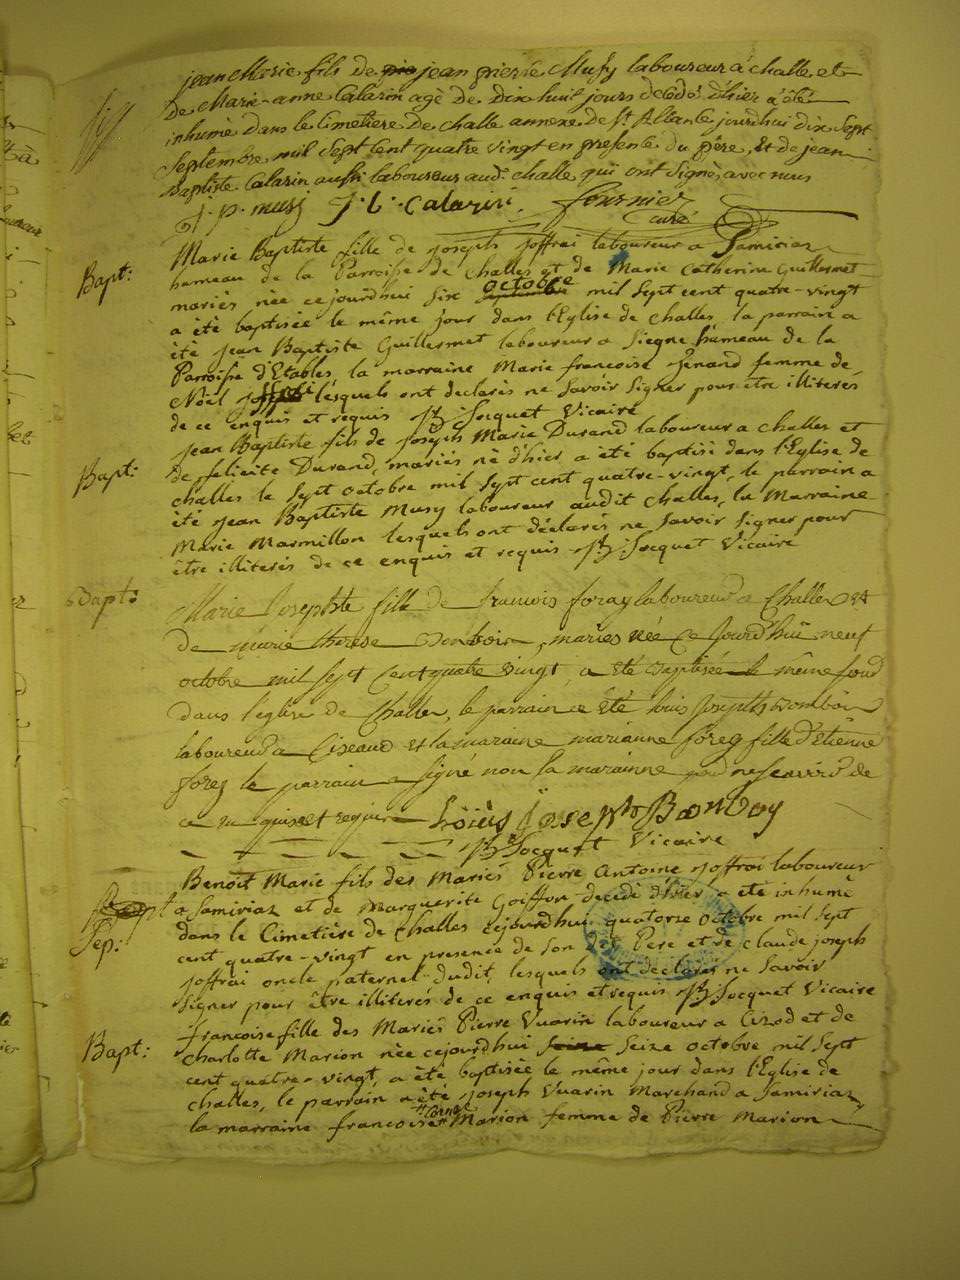 jean Marie fils de jean pierre Musy laboureur à challe et
de Marie-anne Calarin agè de dix huit jours decédé d'hier à ètè
inhumè dans le Cimetiere de challe annexe de St Allante jourdhui dix sept
Septembre mil sept cent quatre vingt en presense du père, Et de jean
Baptiste Calarin aussi laboureur aud: challe qui ont signès avec nous
J. p. musy J. b. Calarin fournier curé
Bapt: Marie Baptiste fille de joseph joffrai laboureur a Samiriaz
hameau de la Parroisse de challes et de Marie Catherine Guillermet
mariés née cejourdhui six octobre mil sept cent quatre-vingt
a été baptisée le même jour dans l'Eglise de challes, la parrain a
été jean Baptiste Guillermet laboureur a Siegne hameau de la
Parroisse d'Etables, la marraine Marie francoise jenand femme de
Noël joffrai lesquels ont declarés ne savoir signer pour être illiterés
de ce enquis et requis Jocquet Vicaire
Bapt: jean Baptiste fils de joseph Marie Durand laboureur a challes et
de felicité Durand, mariés né d'hier a été baptisé dans l'Eglise de
challes le sept octobre mil sept cent quatre-vingt, le parrain a
été jean Baptiste Musy laboureur audit challes, la Marraine
Marie Marmillon lesquels ont déclarés ne savoir signer pour
être illiterés de ce enquis et requis Jocquet Vicaire
Bapt: Marie Josephte fille de francois foray laboureur a Challes et
de marie therese Bomboin, mariés née ce jourd'hui neuf
octobre mil sept cent quatre vingt, a été Baptisée le même jour
dans l'eglise de Challes, le parrain a été louis Joseph Bomboin
laboureur a Ciseaud et la maraine marianne foreg fille d'Etienne
foreg le parrain a signé non la marainne pour ne scavoir de
ce enquise et requise loüis joseph Bonboy
Jocquet Vicaire
Sep: Benoit Marie fils des Mariés Pierre Antoine joffrai laboureur
a Samiriaz et de Marguerite Goiffon decédé d'hier a été inhumé
dans le Cimetiere de challes cejourdhui quatorze octobre mil sept
cent quatre-vingt en presence de son dit Pere et de claude joseph
joffrai oncle paternel dudit, lesquels ont declarés ne savoir
signer pour être illiterés de ce enquis et requis Jocquet Vicaire
Bapt: francoise fille des Mariés Pierre Vuarin laboureur a Cizod et de
charlotte Marion née cejourdhui seize octobre mil sept
cent quatre-vingt, a été baptisée le même jour dans l'Eglise de
challes, le parrain a été joseph Vuarin Marchand a Samiriaz,
la marraine francoise Marion femme de Pierre Marion